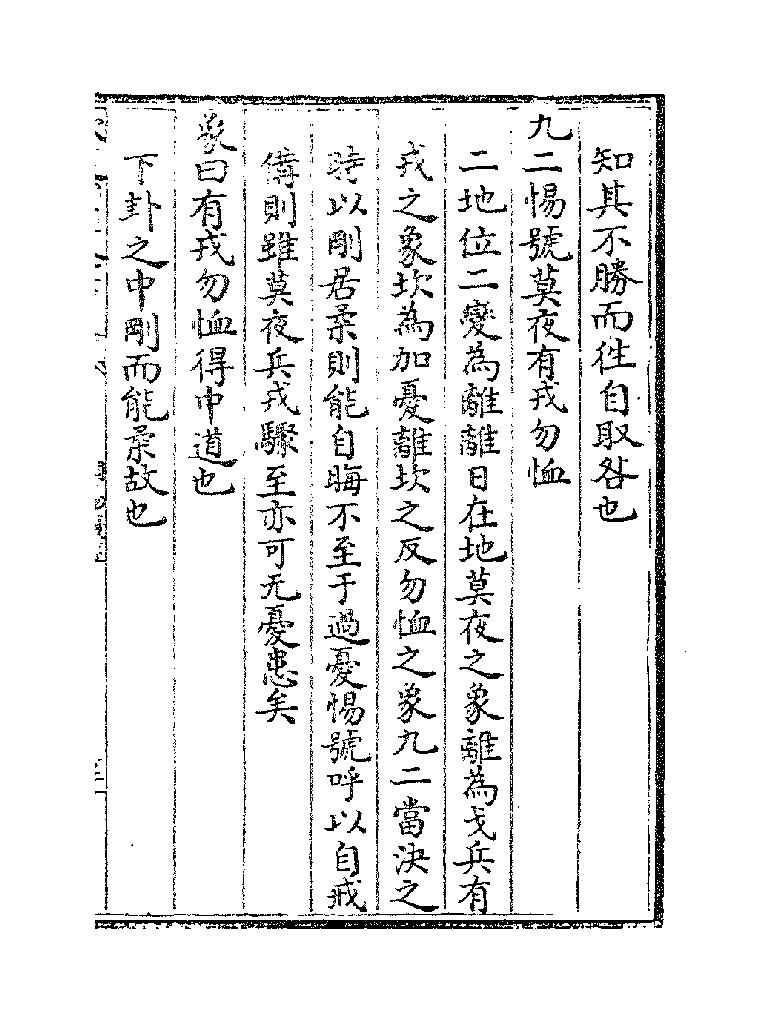 知其不勝而徃自取咎也
九二惕號莫夜有戎勿恤
二地位二變為離離日在地莫夜之象離為戈兵有
戎之象坎為加憂離坎之反勿恤之象九二當決之
時以剛居柔則能自晦不至于過憂惕號呼以自戒
備則雖莫夜兵戎驟至亦可无憂患矣
象曰有戎勿恤得中道也
下卦之中剛而能柔故也